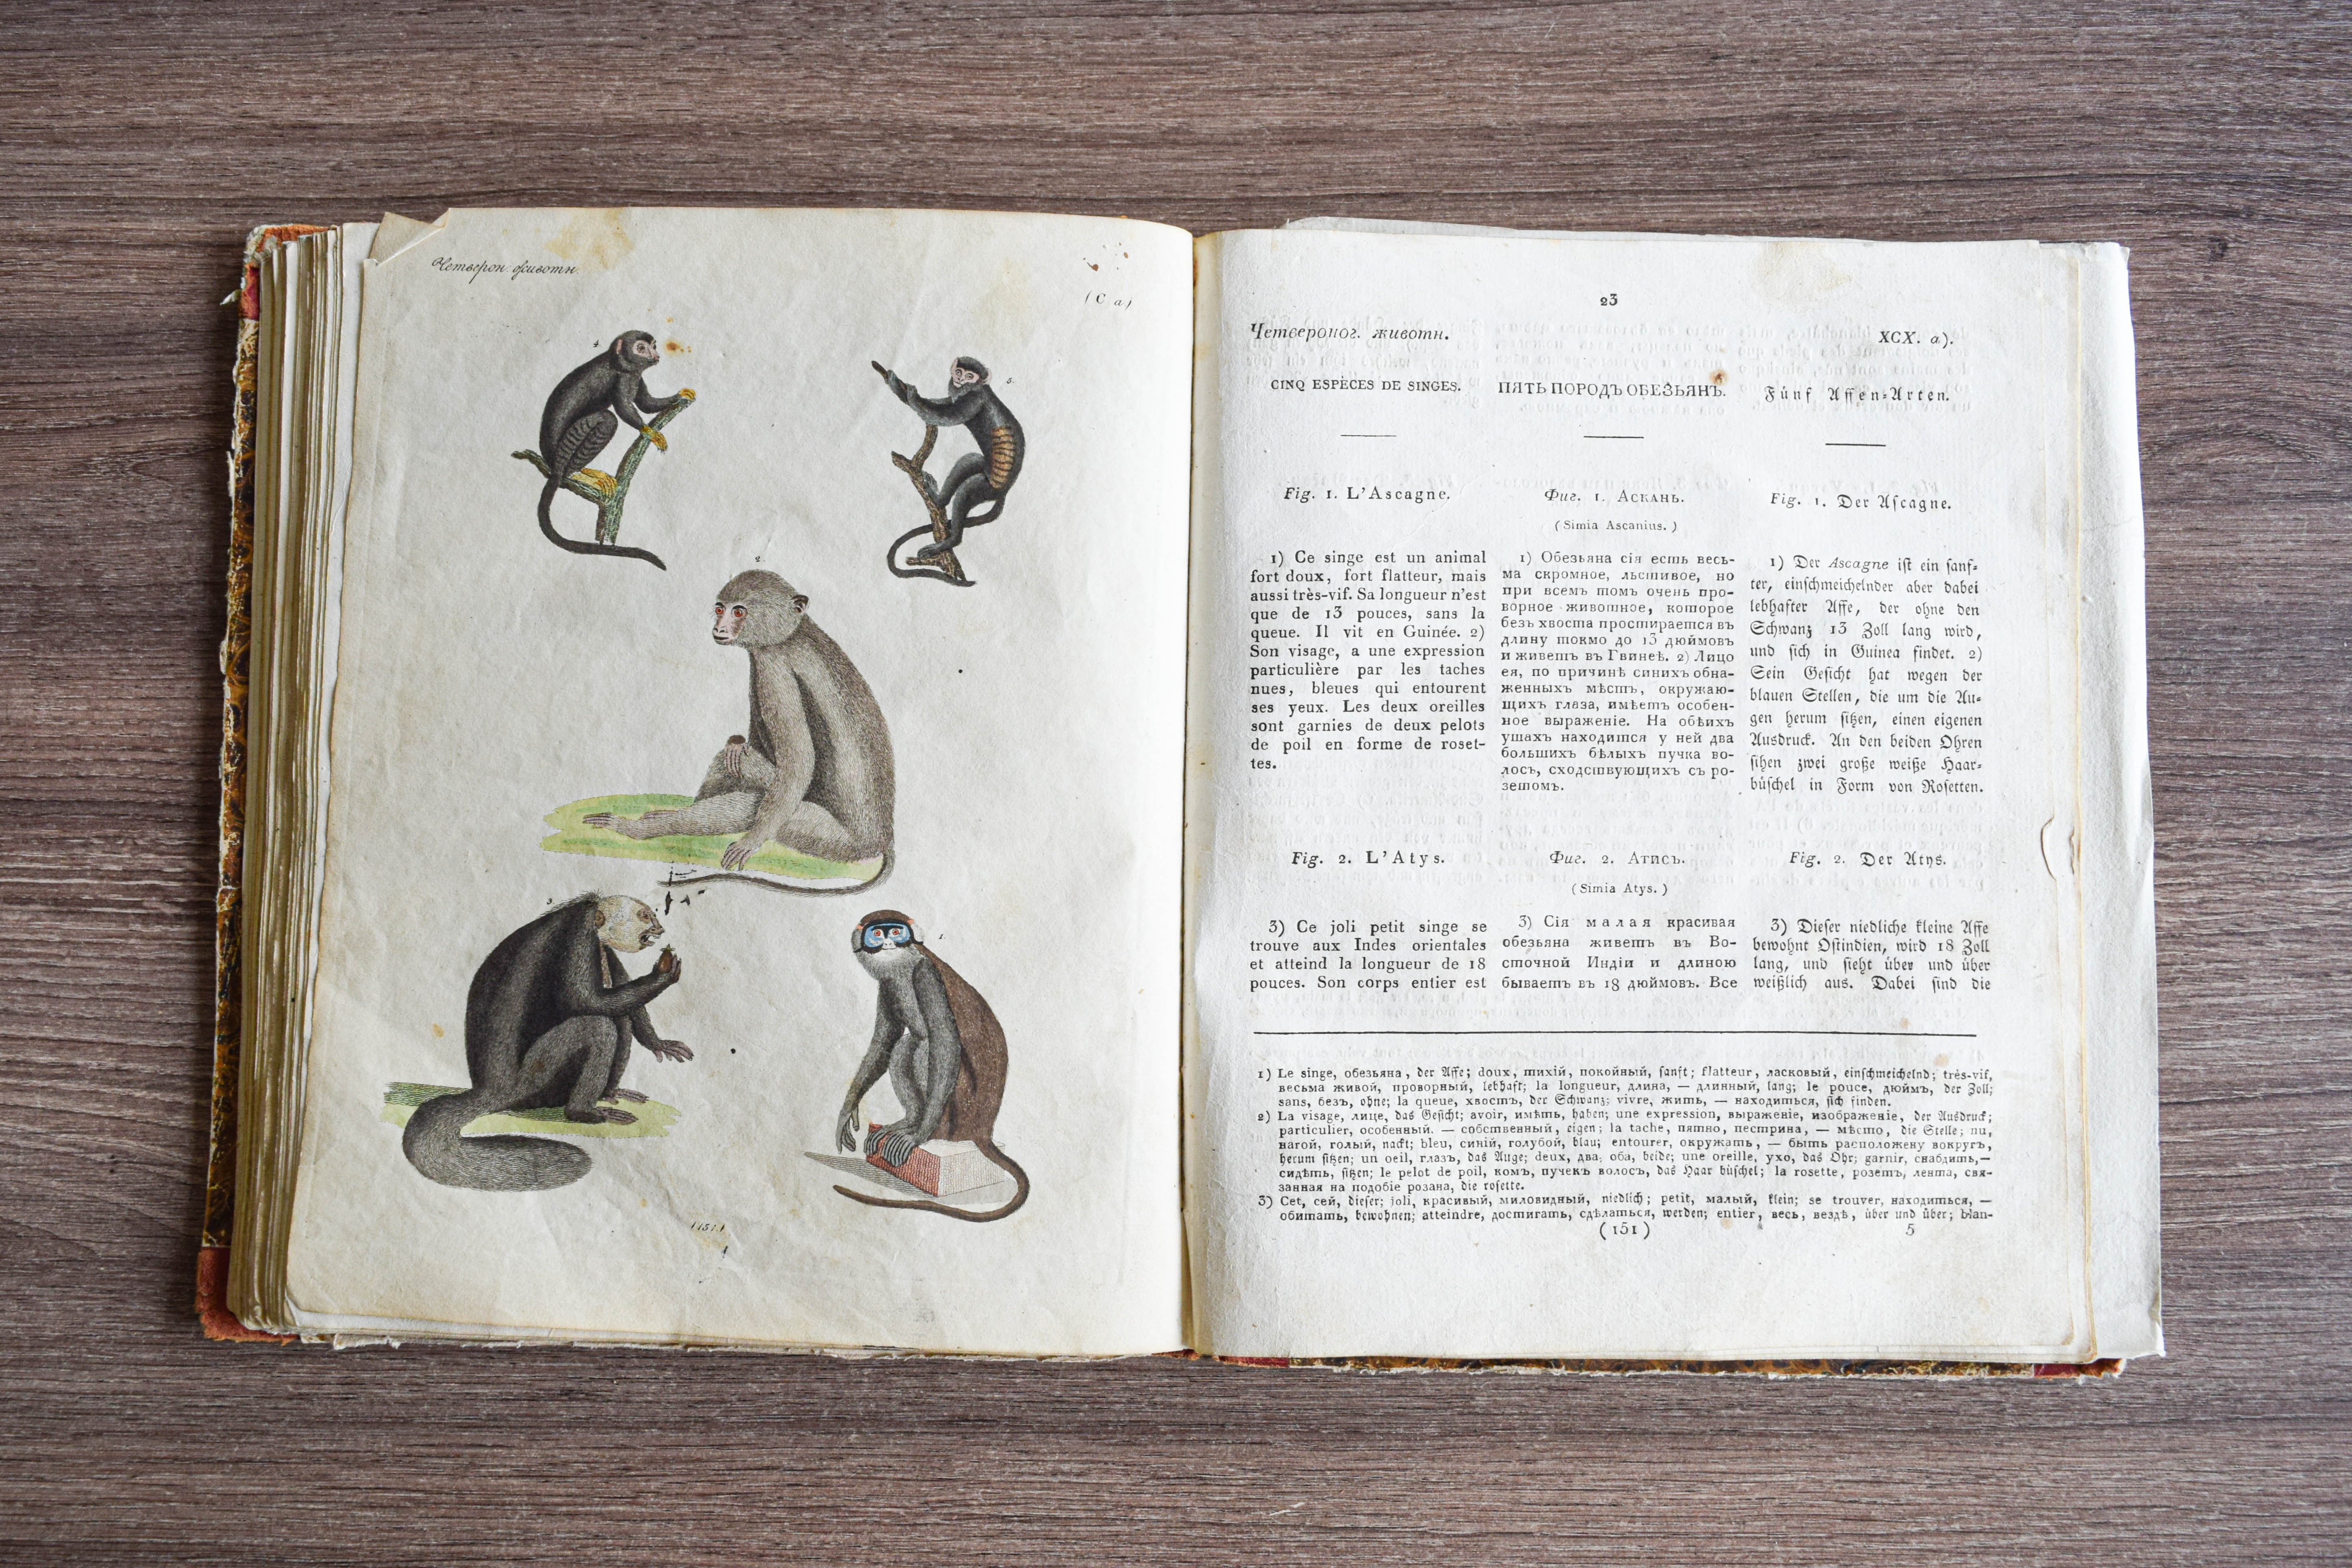 Четверон. животн.
(C. a)
4.
5.
2.
3.
1.
(151.)
23
Четвероног. животн.
XCX. a).
CINQ ESPÈCES DE SINGES.
Fig. 1. L'Ascagne.
1) Ce singe est un animal
fort doux, fort flatteur, mais
aussi très-vif. Sa longueur n'est
que de 13 pouces, sans la
queue. Il vit en Guinée. 2)
Son visage, a une expression
particulière par les taches
nues, bleues qui entourent
ses yeux. Les deux oreilles
sont garnies de deux pelots
de poil en forme de roset-
tes.
Fig. 2. L'Atys.
3) Ce joli petit singe se
trouve aux Indes orientales
et atteind la longueur de 18
pouces. Son corps entier est
ПЯТЬ ПОРОДЪ ОБЕЗЬЯНЪ.
Фиг. 1. Аскань.
(Simia Ascanius.)
1) Обезьяна сія есть весь-
ма скромное, льстивое, но
при всемъ томъ очень про-
ворное животное, которое
безъ хвоста простирается въ
длину токмо до 13 дюймовъ
и живетъ въ Гвинеѣ. 2) Лицо
ея, по причинѣ синихъ обна-
женныхъ мѣстъ, окружаю-
щихъ глаза, имѣетъ особен-
ное выраженіе. На обѣихъ
ушахъ находится у ней два
большихъ бѣлыхъ пучка во-
лосъ, сходствующихъ съ ро-
зетомъ.
Фиг. 2. Атисъ.
(Simia Atys.)
3) Сія малая красивая
обезьяна живетъ въ Во-
сточной Индіи и длиною
бываетъ въ 18 дюймовъ. Все
Fúnf Affen-Arten.
Fig. 1. Der Aſcagne.
1) Der Ascagne iſt ein ſanf-
ter, einſchmeichelnder aber dabei
lebhafter Affe, der ohne den
Schwanz 13 Zoll lang wird,
und ſich in Guinea findet. 2)
Sein Geſicht hat wegen der
blauen Stellen, die um die Au-
gen herum ſitzen, einen eigenen
Ausdruck. An den beiden Ohren
ſitzen zwei große weiße Haar-
búſchel in Form von Roſetten.
Fig. 2. Der Atys.
3) Dieſer niedliche kleine Affe
bewohnt Oſtindien, wird 18 Zoll
lang, und ſieht úber und úber
weißlich aus. Dabei ſind die
1) Le singe, обезьяна, der Affe; doux, тихій, покойный, ſanft; flatteur, ласковый, einſchmeichelnd; très-vif,
весьма живой, проворный, lebhaft; la longueur, длина, — длинный, lang; le pouce, дюймъ, der Zoll;
sans, безъ, ohne; la queue, хвостъ, der Schwanz; vivre, жить, — находиться, ſich finden.
2) La visage, лице, das Geſicht; avoir, имѣть, haben; une expression, выраженіе, изображеніе, der Ausdruck;
particulier, особенный. — собственный, eigen; la tache, пятно, пестрина, — мѣсто, die Stelle; nu,
нагой, голый, nackt; bleu, синій, голубой, blau; entourer, окружать, — быть расположену вокругъ,
herum ſitzen; un oeil, глазъ, das Auge; deux, два, оба, beide; une oreille, ухо, das Ohr; garnir, снабдить,—
сидѣть, ſitzen; le pelot de poil, комъ, пучекъ волосъ, das Haar búſchel; la rosette, розетъ, лента, свя-
занная на подобіе розана, die roſette.
3) Cet, сей, dieſer; joli, красивый, миловидный, niedlich; petit, малый, klein; se trouver, находиться, —
обитать, bewohnen; atteindre, достигать, сдѣлаться, werden; entier, весь, вездѣ, úber und úber; blan-
(151)
5